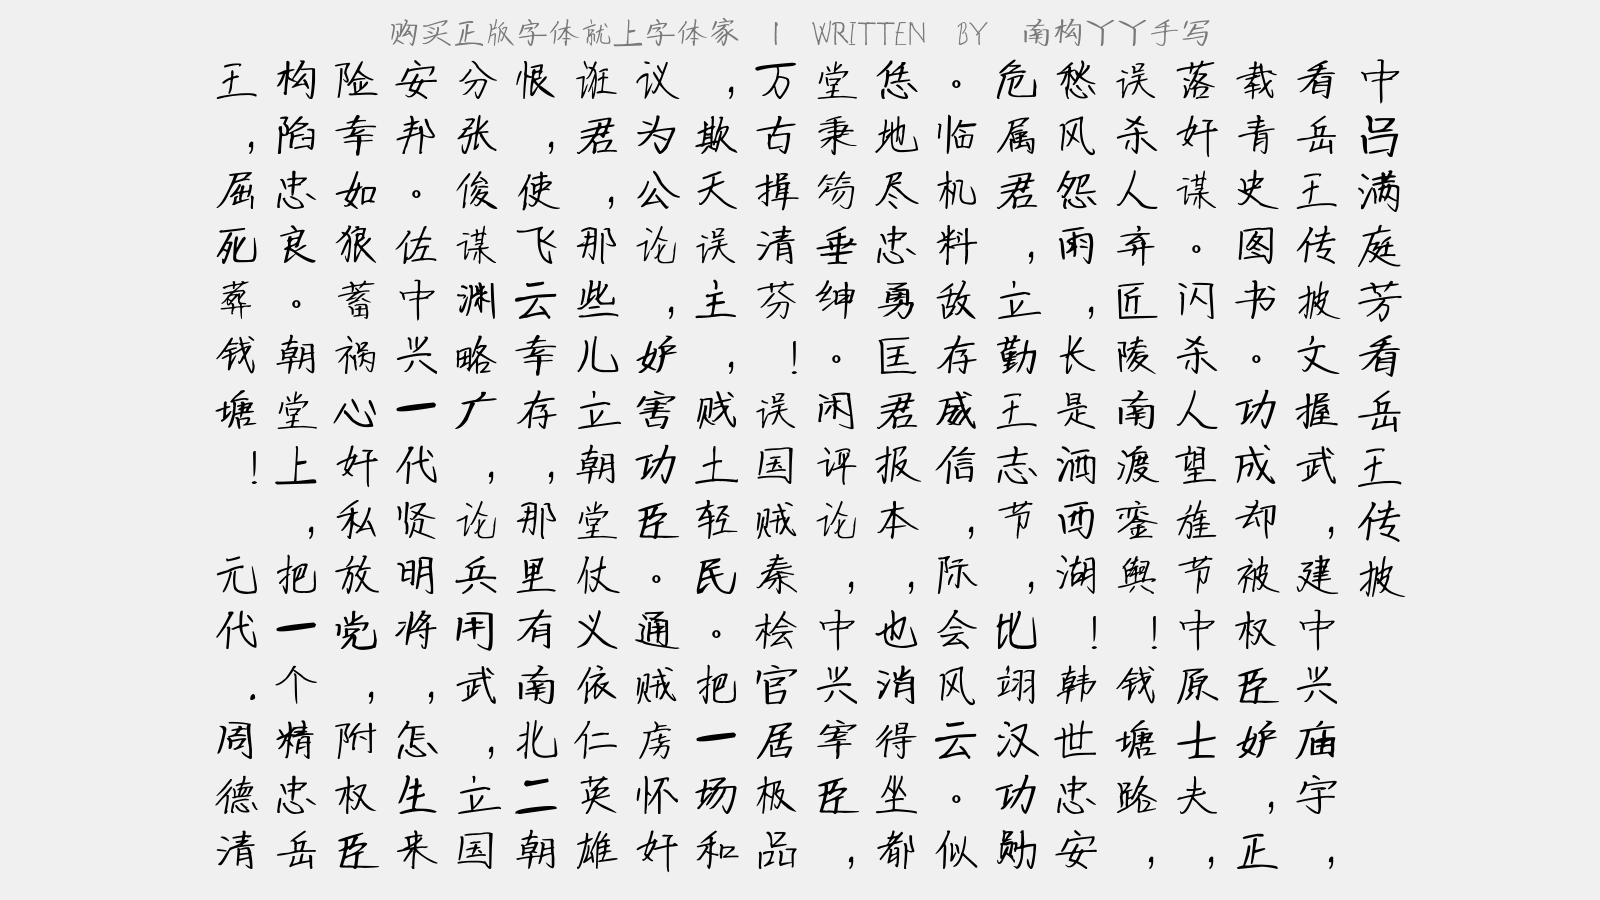 购买正版字体就上字体家 | WRITTEN BY 南构丫丫手写
中吕满庭芳看岳王传披
看岳王传披文握武，建中兴庙宇，
载青史图书。功成却被权臣妒，正
落奸谋。闪杀人望旌节中原士夫，
误杀人弃陵南渡銮舆！钱塘路，
愁风怨雨，长是洒西湖！韩世忠安
危属君，立勤王志节，翊汉功勋
临机料敌存威信，际会风云。似
恁地尽忠勇匡君报本，也消得坐都
堂秉笏垂绅。闲评论，中兴宰臣，
万古揖清芬！误国贼秦桧官居极品
，欺天误主，贱土轻民。把一场和
议为公论，妒害功臣。通贼虏怀奸
诳君，那些儿立朝堂仗义依仁英雄
恨，使飞云幸存，那里有南北二朝
分张俊谋渊略广，论兵用武，立国
安邦。佐中兴一代贤明将，怎生来
险幸如狼蓄祸心奸私放党，附权臣
构陷忠良。朝堂上，把一个精忠岳
王，屈死葬钱塘！元代.周德清